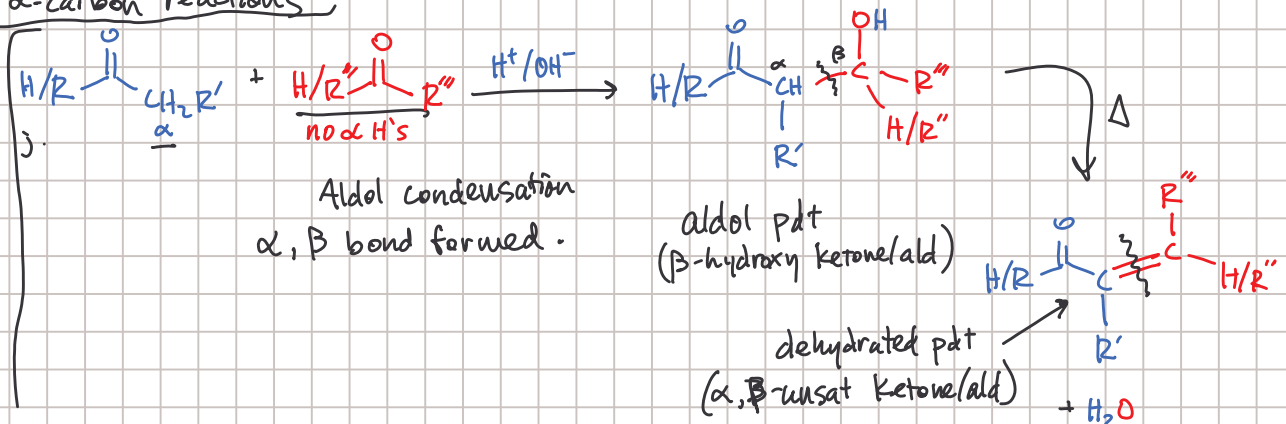 α-carbon reactions
j.
O
H/R CH₂R'
α
+
O
H/R'' R'''
no α H's
H⁺/OH⁻
O
H/R CH
α
R'
β
OH
C
R'''
H/R''
Δ
Aldol condensation
α, β bond formed.
aldol pdt
(β-hydroxy ketone/ald)
O
H/R C
R'
R'''
C
H/R''
dehydrated pdt
(α,β-unsat ketone/ald)
+ H₂O